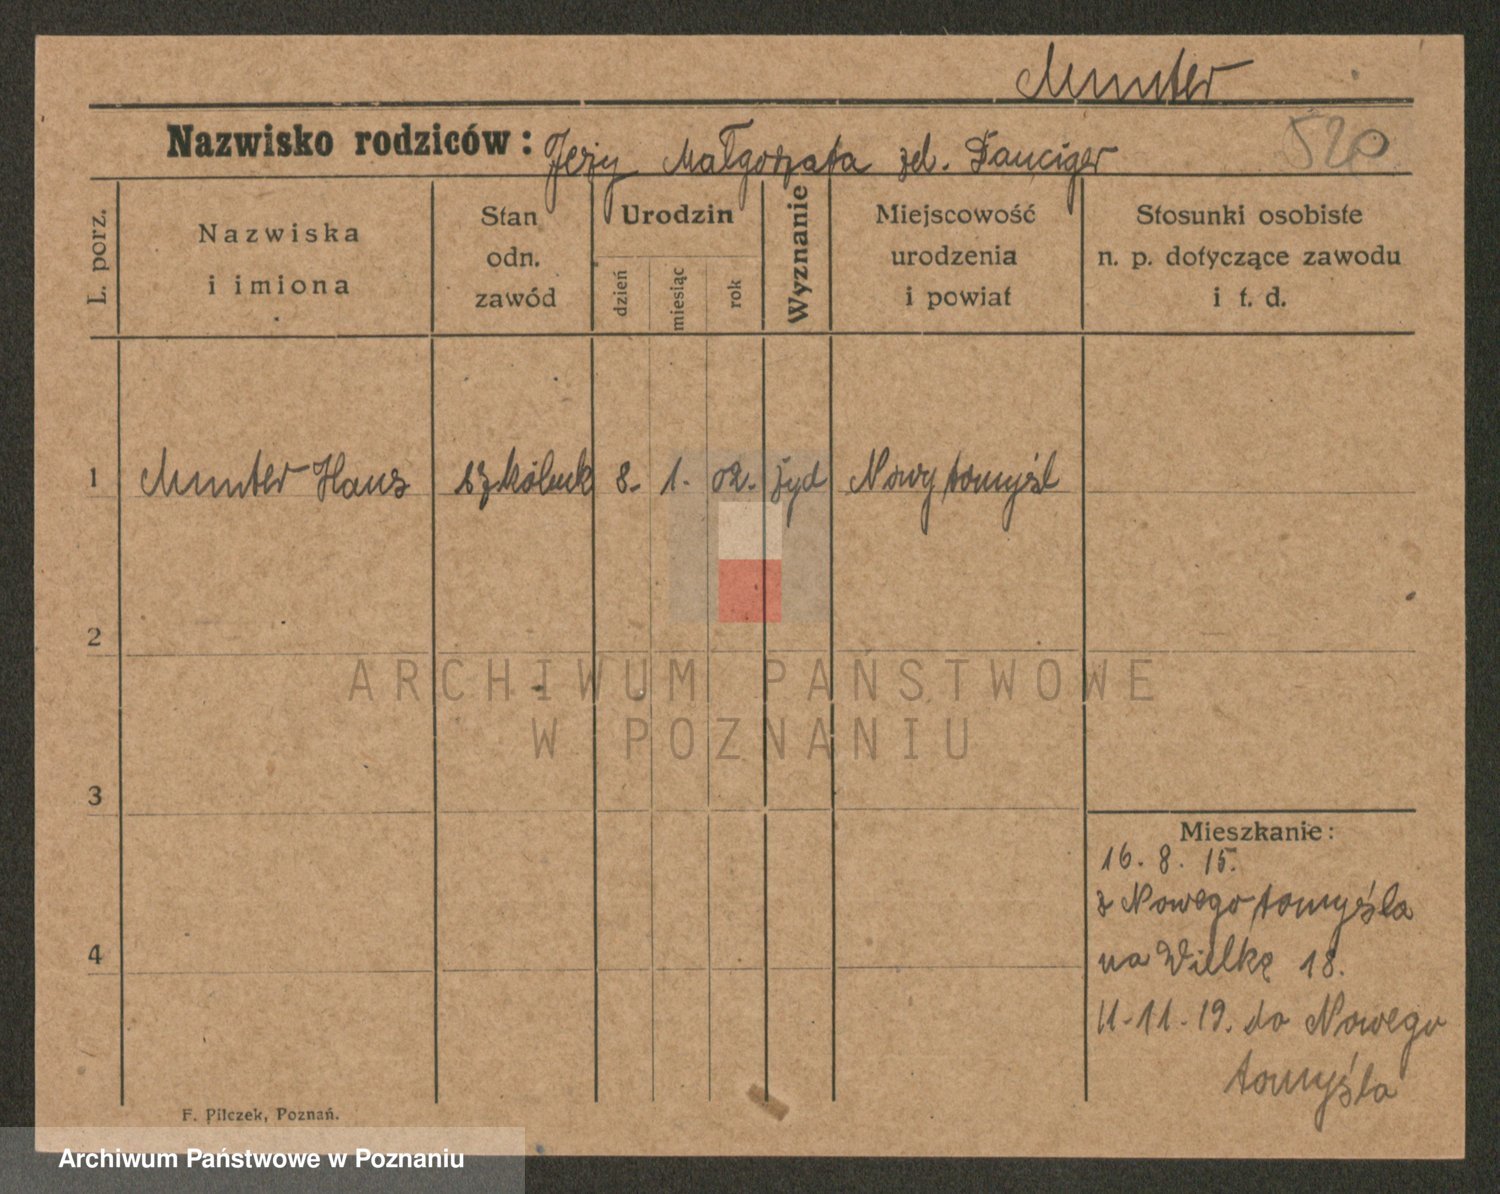 Munter
Nazwisko rodziców: Jerzy Małgorzata zd. Danciger
520
L. porz.
Nazwiska
i imiona
Stan
odn.
zawód
Urodzin
dzień
miesiąc
rok
Wyznanie
Miejscowość
urodzenia
i powiat
Stosunki osobiste
n. p. dotyczące zawodu
i t. d.
1 Munter Hans 8. 1. 02. żyd Nowy tomyśl
2
ARCHIWUM PAŃSTWOWE
W POZNANIU
3
Mieszkanie:
16. 8. 15.
z Nowego tomyśla
4
na Wielkę 18.
11.11.19. do Nowego
tomyśla
F. Pilczek, Poznań.
Archiwum Państwowe w Poznaniu